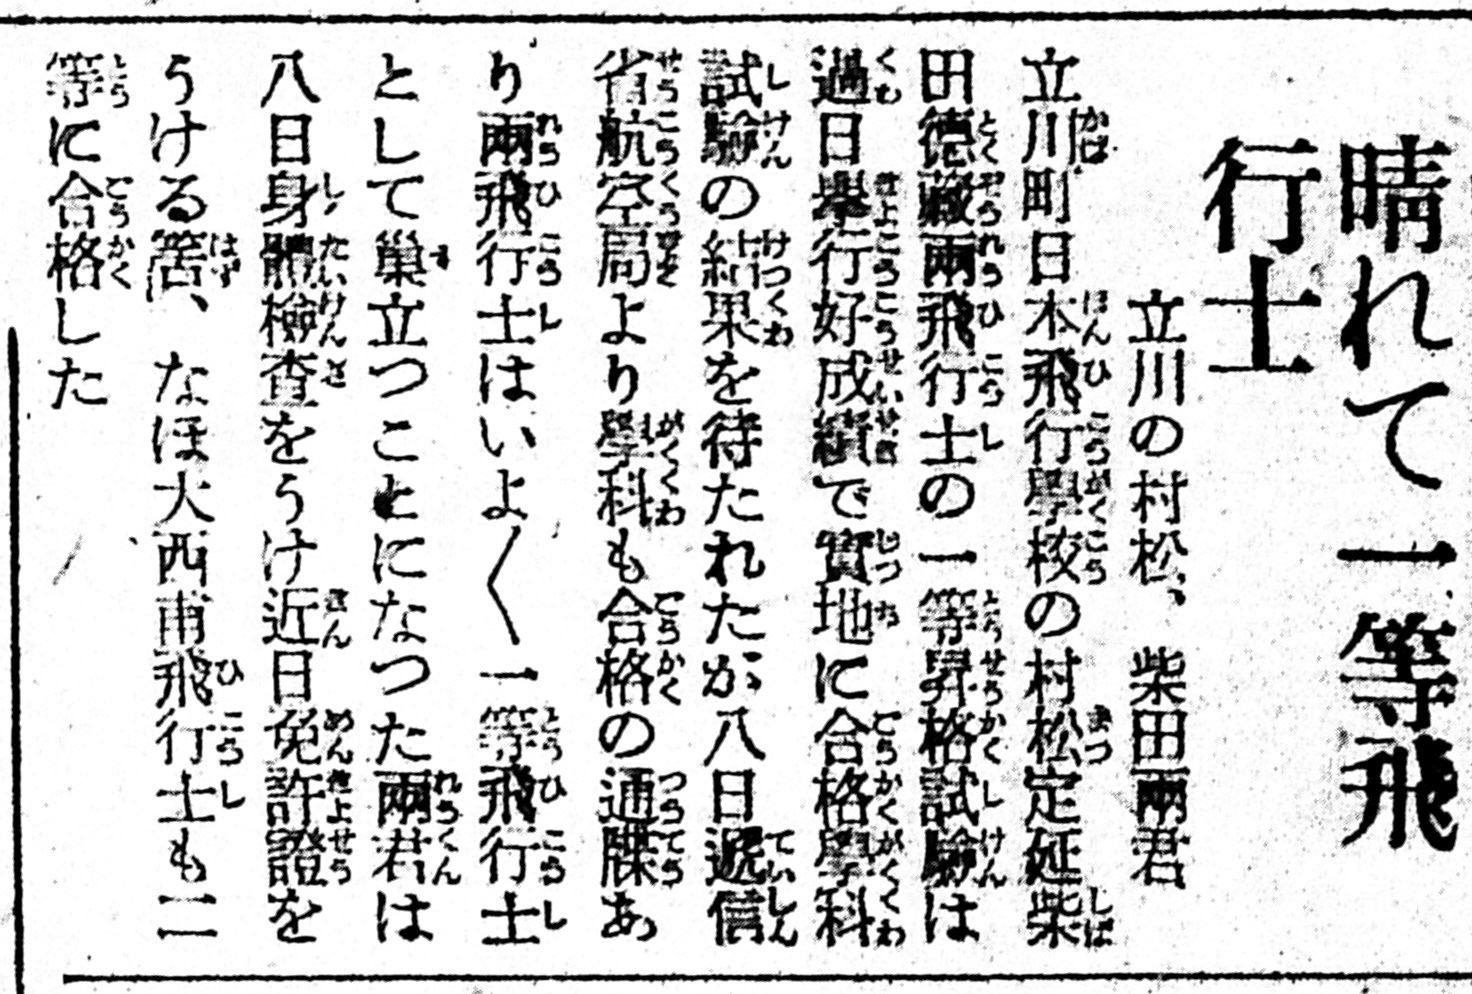 晴れて一等飛
行士
立川の村松、柴田兩君
立川町日本飛行學校の村松定延柴
田德藏兩飛行士の一等昇格試驗は
過日擧行好成績で實地に合格學科
試驗の結果を待たれたが八日遞信
省航空局より學科も合格の通牒あ
り兩飛行士はいよ〱一等飛行士
として巢立つことになつた兩君は
八日身體檢査をうけ近日免許證を
うける筈、なほ大西甫飛行士も二
等に合格した